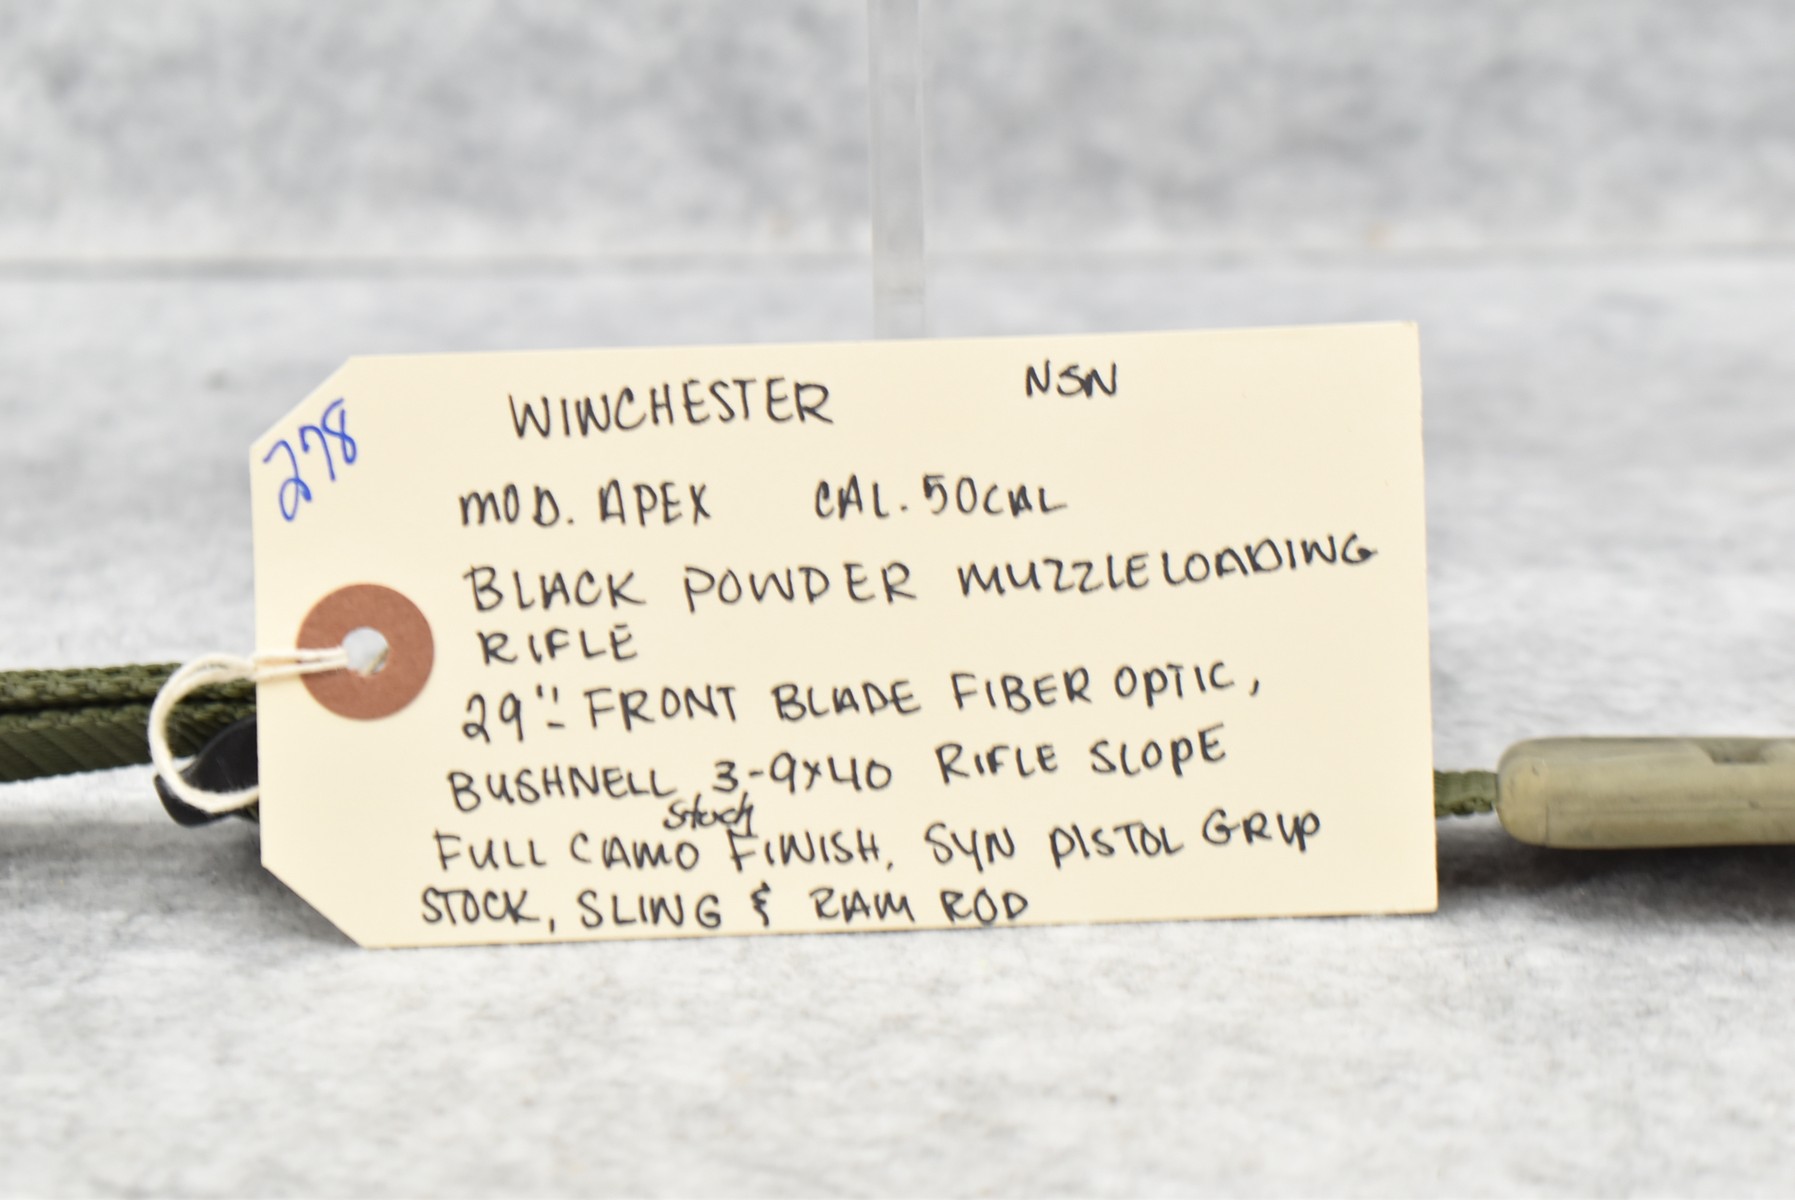 278
WINCHESTER NSN
MOD. APEX CAL. 50CAL
BLACK POWDER MUZZLELOADING
RIFLE
29"- FRONT BLADE FIBER OPTIC,
BUSHNELL 3-9x40 RIFLE SLOPE
Stock
FULL CAMO FINISH, SYN PISTOL GRIP
STOCK, SLING & RAM ROD